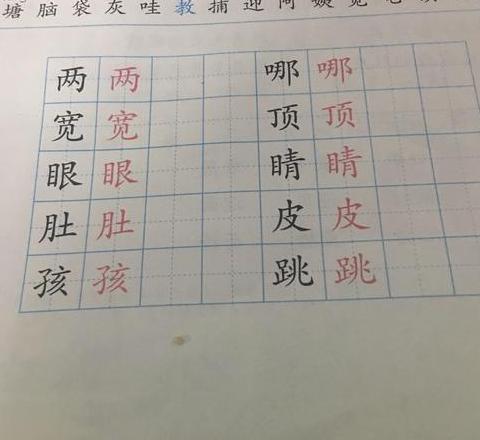 塘脑袋灰哇教捕迎阿姨宽
两两哪哪
宽宽顶顶
眼眼睛睛
肚肚皮皮
孩孩跳跳